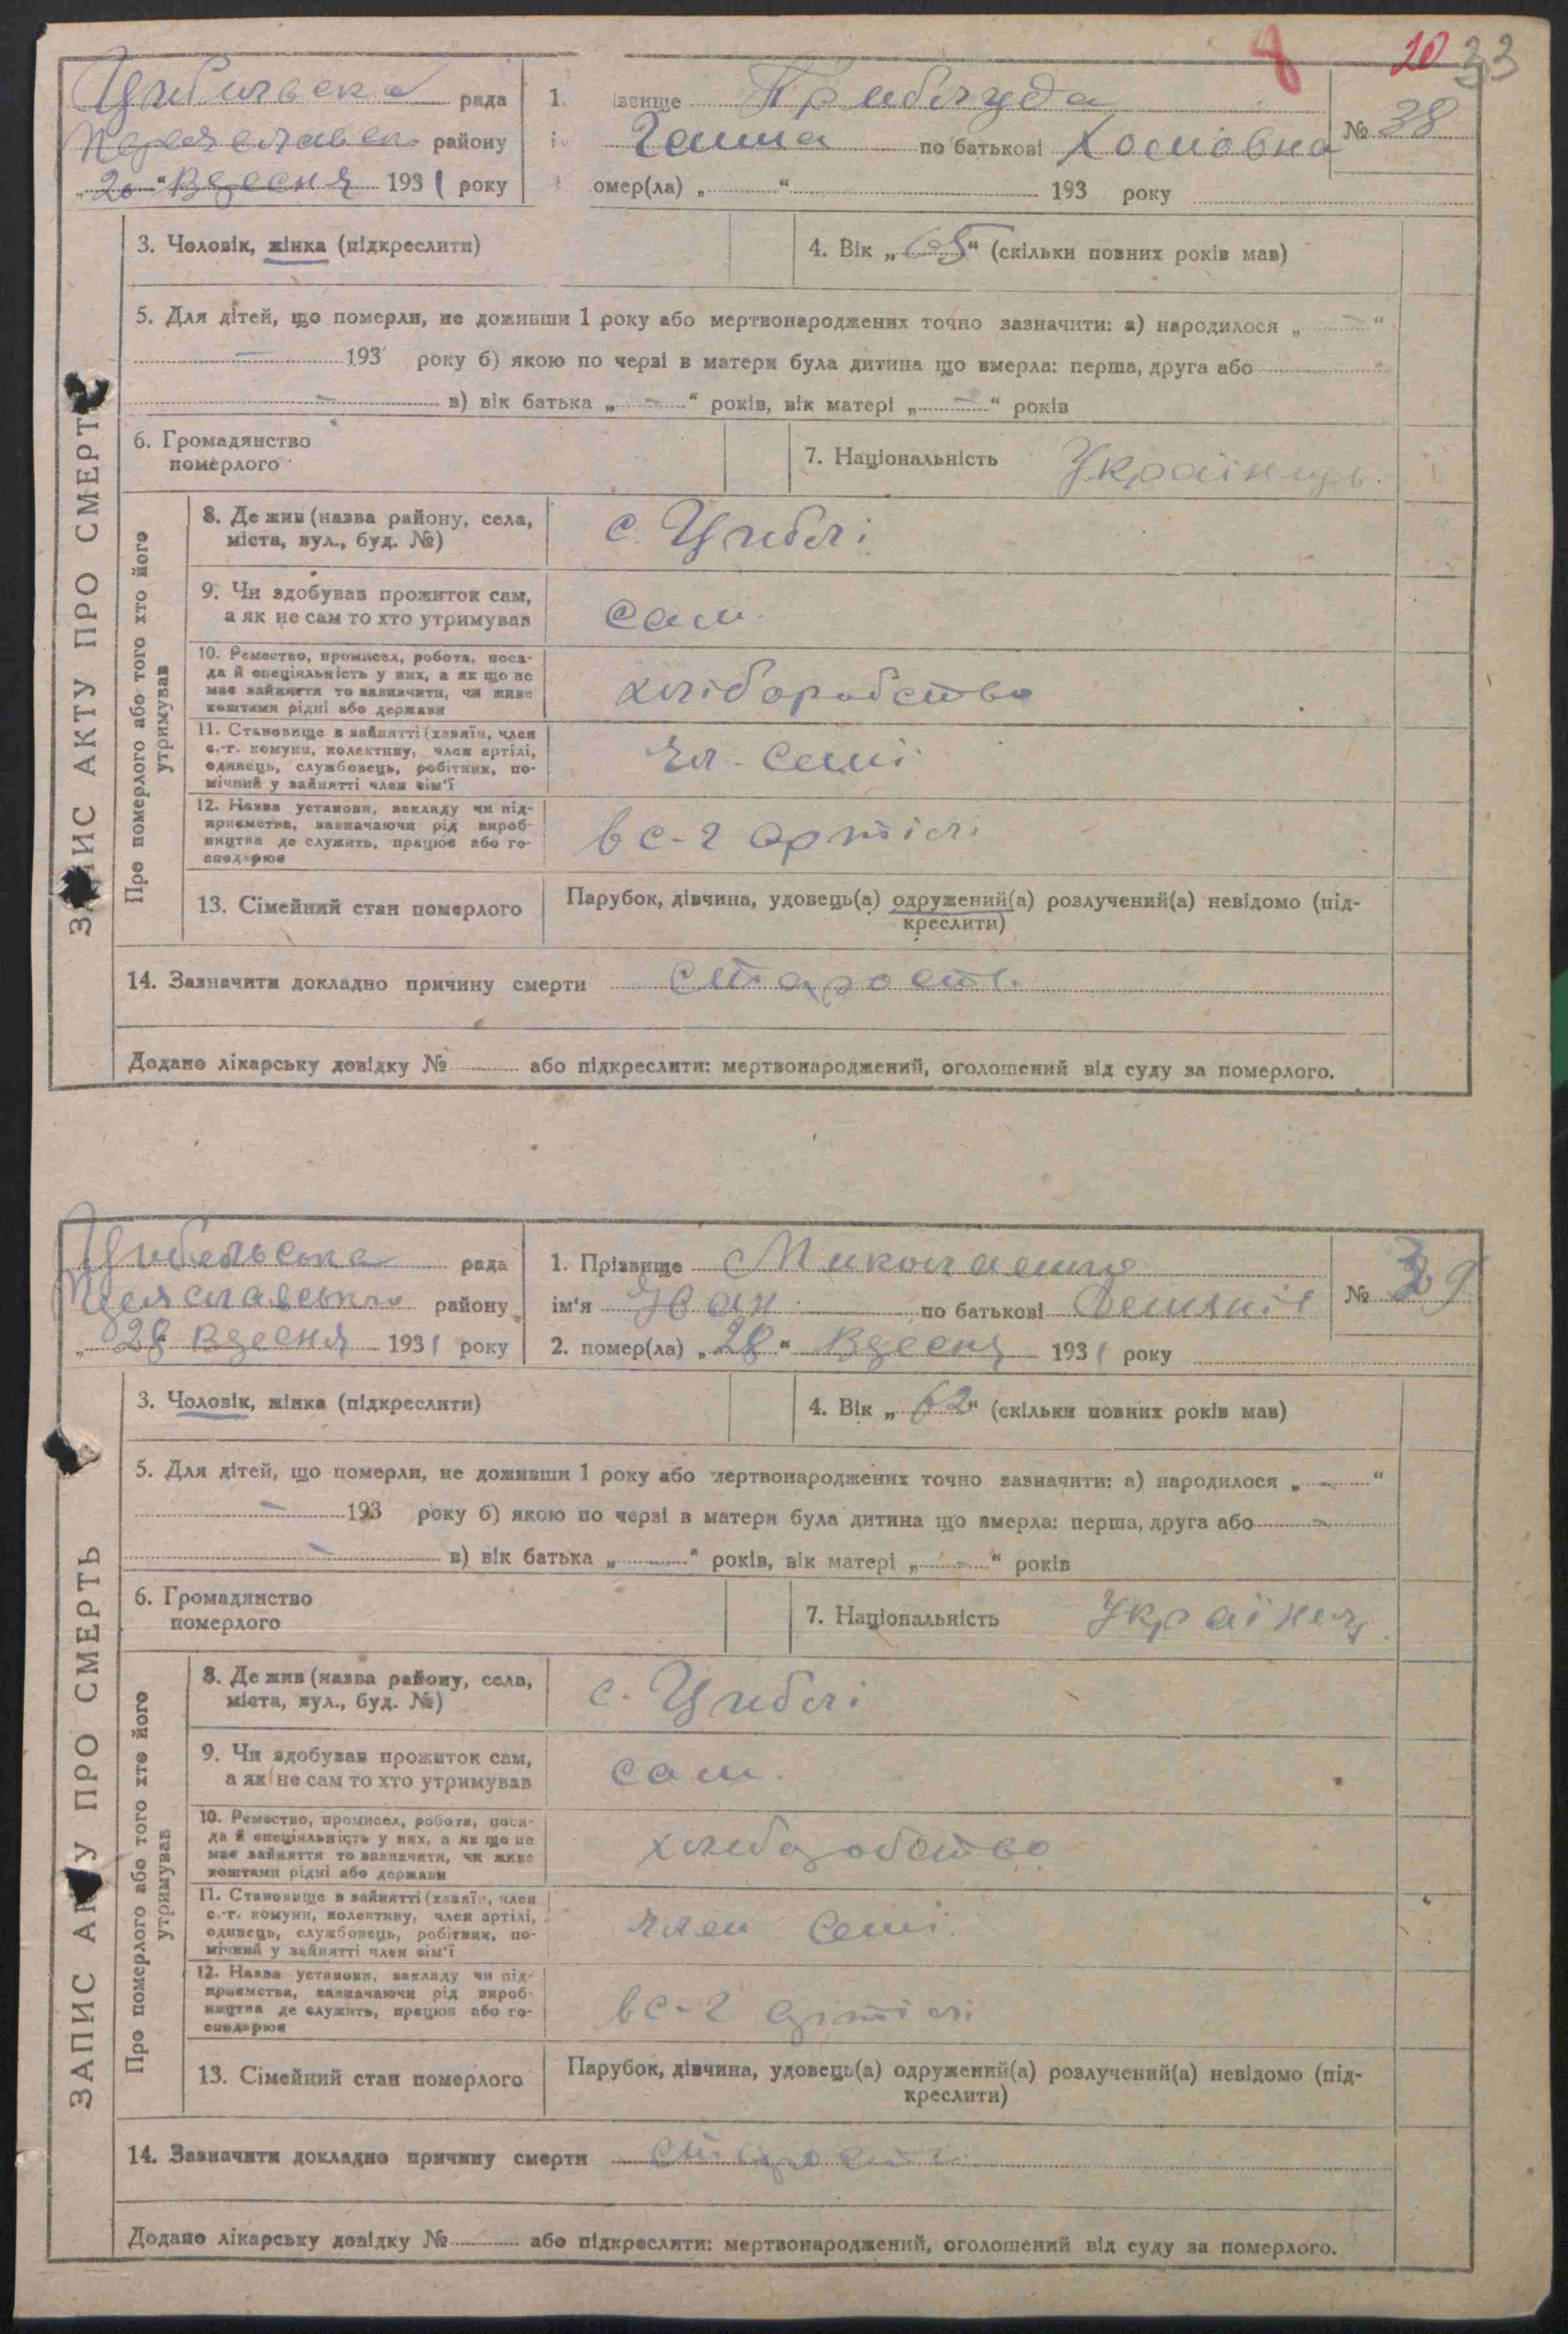 8 20 33
Цибильвска рада
району
„20“ Вересня 1931 року
1. ізвище
Ганна по батькові Хомовна
№ 38
омер(ла) „ “ 193 року
3. Чоловік, жінка (підкреслити)
4. Вік „65“ (скільки повних років мав)
5. Для дітей, що померли, не доживши 1 року або мертвонароджених точно зазначити: а) народилося „ – “
– 193 року б) якою по черзі в матери була дитина що вмерла: перша, друга або
– в) вік батька „ – “ років, вік матері „ – “ років
6. Громадянство
померлого
7. Національність Українць.
ЗАПИС АКТУ ПРО СМЕРТЬ
Про померлого або того хто його
утримував
8. Де жив (назва району, села,
міста, вул., буд. №)
с. Циблі
9. Чи здобував прожиток сам,
а як не сам то хто утримував
сам.
10. Ремество, промисел, робота, поса-
да й спеціяльність у них, а як що не
має зайняття то зазначити, чи живе
коштами рідні або держави
хліборобство
11. Становище в зайнятті (хазяїн, член
с.-г. комуни, колективу, член артілі,
одинець, службовець, робітник, по-
мічний у зайнятті член сім'ї
чл. семі
12. Назва установи, закладу чи під-
приємства, зазначаючи рід вироб-
ництва де служить, працює або го-
сподарює
в с-г артілі
13. Сімейний стан померлого
Парубок, дівчина, удовець(а) одружений(а) розлучений(а) невідомо (під-
креслити)
14. Зазначити докладно причину смерти старость.
Додано лікарську довідку № або підкреслити: мертвонароджений, оголошений від суду за померлого.
Цибельська рада
району
„28“ Вересня 1931 року
1. Прізвище Миколаенко
ім'я Іван по батькові
№ 39
2. помер(ла) „28“ Вересня 1931 року
3. Чоловік, жінка (підкреслити)
4. Вік „62“ (скільки повних років мав)
5. Для дітей, що померли, не доживши 1 року або мертвонароджених точно зазначити: а) народилося „ – “
– 193 року б) якою по черзі в матери була дитина що вмерла: перша, друга або –
– в) вік батька „ “ років, вік матері „ – “ років
6. Громадянство
померлого
7. Національність Українец.
ЗАПИС АКТУ ПРО СМЕРТЬ
Про померлого або того хто його
утримував
8. Де жив (назва району, села,
міста, вул., буд. №)
с. Циблі
9. Чи здобував прожиток сам,
а як не сам то хто утримував
сам.
10. Ремество, промисел, робота, поса-
да й спеціяльність у них, а як що не
має зайняття то зазначити, чи живе
коштами рідні або держави
11. Становище в зайнятті (хазяїн, член
с.-г. комуни, колективу, член артілі,
одинець, службовець, робітник, по-
мічний у зайнятті член сім'ї
член семі.
12. Назва установи, закладу чи під-
приємства, зазначаючи рід вироб-
ництва де служить, працює або го-
сподарює
в с-г артілі
13. Сімейний стан померлого
Парубок, дівчина, удовець(а) одружений(а) розлучений(а) невідомо (під-
креслити)
14. Зазначити докладно причину смерти старость
Додано лікарську довідку № або підкреслити: мертвонароджений, оголошений від суду за померлого.